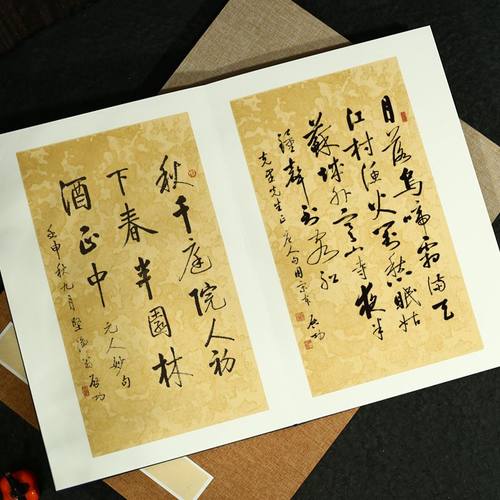 月落烏啼霜滿天
江村漁火對愁眠姑
蘇城外寒山寺夜半
鐘聲到客船
先生正唐人句用宋本 启功
秋千庭院人初
下春半園林
酒正中
元人妙句
壬申秋九月堅净翁启功